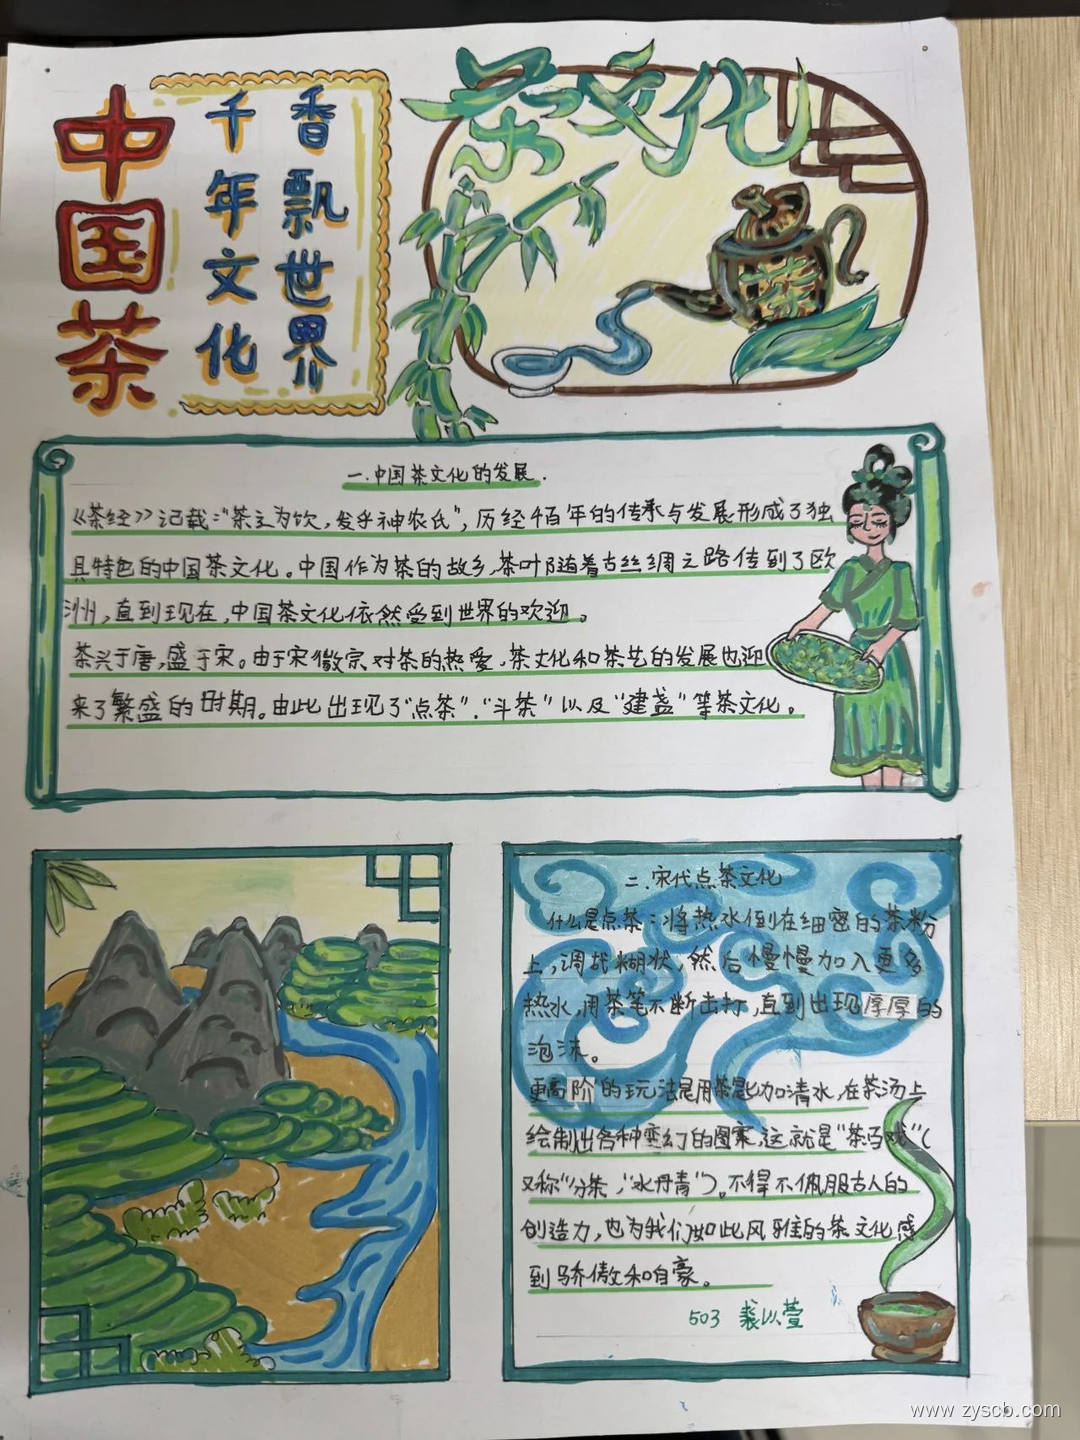 中国茶
千年文化
香飘世界
茶文化
茶
一.中国茶文化的发展.
《茶经》记载:"茶之为饮,发乎神农氏",历经千百年的传承与发展形成了独
具特色的中国茶文化。中国作为茶的故乡,茶叶随着古丝绸之路传到了欧
洲,直到现在,中国茶文化依然受到世界的欢迎。
茶兴于唐,盛于宋。由于宋徽宗对茶的热爱,茶文化和茶艺的发展也迎
来了繁盛的时期。由此出现了"点茶"."斗茶"以及"建盏"等茶文化。
二.宋代点茶文化
什么是点茶:将热水倒在细密的茶粉
上,调成糊状,然后慢慢加入更多
热水,用茶筅不断击打,直到出现厚厚的
泡沫。
更高阶的玩法是用茶匙加清水,在茶汤上
绘制出各种变幻的图案,这就是"茶百戏"(
又称"分茶","水丹青")。不得不佩服古人的
创造力,也为我们如此风雅的茶文化感
到骄傲和自豪。
503 裴以萱
www.zyscb.com